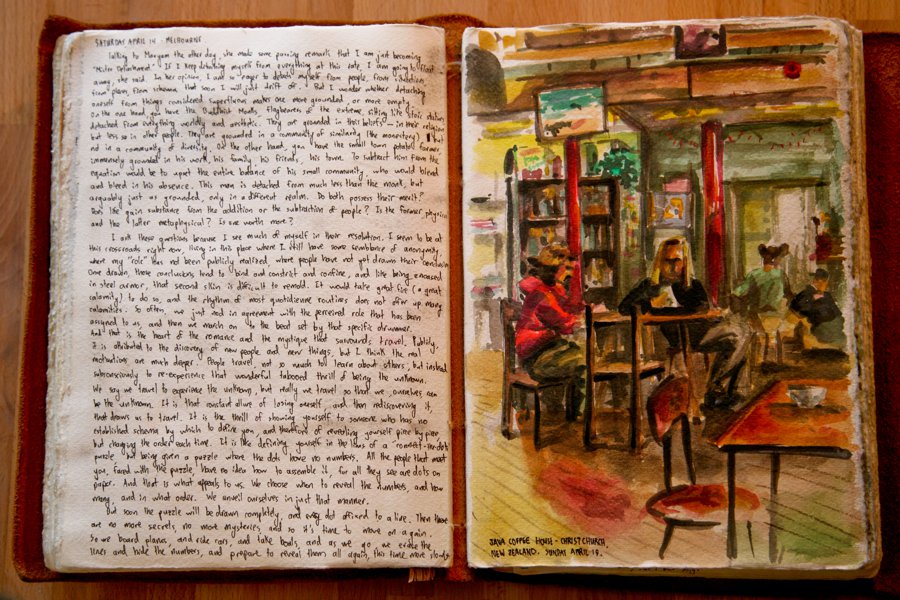 SATURDAY APRIL 14 - MELBOURNE
Talking to Maryam the other day, she made some passing remark that I am just becoming
"Mister Detachment". If I keep detaching myself from everything at this rate, I am going to float
away, she said. In her opinion, I am so eager to detach myself from people, from situations,
from places, from schema that soon I will just drift off. But I wonder whether detaching
oneself from things considered superfluous makes one more grounded, or more empty.
On the one hand, you have the Buddhist Monks, flagbearers of the extreme, sitting like stoic statues,
detached from everything worldly and aesthetic. They are grounded in their beliefs, in their religion
but less so in other people. They are grounded in a community of similarity (the monastery), but
not in a community of diversity. On the other hand, you have the small town potato farmer
immensely grounded in his work, his family, his friends, his town. To subtract him from the
equation would be to upset the entire balance of his small community, who would bleed
and bleed in his absence. This man is detached from much less than the monk, but
arguably just as grounded, only in a different realm. Do both possess their merit?
Does life gain substance from the addition or the subtraction of people? Is the former physical
and the latter metaphysical? Is one worth more?
I ask these questions because I see much of myself in their resolution. I seem to be at
this crossroads right now, living in this place where I still have some semblance of anonymity,
where my "role" has not been publicly realized, where people have not yet drawn their conclusions.
Once drawn, those conclusions tend to bind and constrict and confine, and like being encased
in steel armor, that second skin is difficult to remold. It would take great fire (a great
calamity) to do so, and the rhythm of most quotidienne routines does not offer up many
calamities. So often, we just nod in agreement with the perceived role that has been
assigned to us, and then we march on to the beat set by that specific drummer.
And that is the heart of the romance and the mystique that surrounds travel. Publicly,
it is attributed to the discovery of new people and new things, but I think the real
motivations are much deeper. People travel not so much to learn about others, but instead
subconsciously to re-experience that wonderful tabooed thrill of being the unknown.
We say we travel to experience the unknown, but really we travel so that we, ourselves, can
be the unknown. It is that constant allure of losing oneself, and then rediscovering it,
that draws us to travel. It is the thrill of showing yourself to someone who has no
established schema by which to define you, and therefore of revealing yourself piece by piece
but changing the order each time. It is like defining yourself in the lines of a connect-the-dots
puzzle but being given a puzzle where the dots have no numbers. All the people that meet
you, faced with the puzzle, have no idea how to assemble it, for all they see are dots on
paper. And that is what appeals to us. We choose when to reveal the numbers, and how
many, and in what order. We unveil ourselves in just that manner.
But soon the puzzle will be drawn completely, and every dot affixed to a line. Then there
are no more secrets, no more mysteries, and so it's time to move on again.
So we board planes, and ride cars and take boats, and as we go we erase the
lines and hide the numbers, and prepare to reveal them all again, this time more slowly.
JAVA COFFEE HOUSE - CHRISTCHURCH
NEW ZEALAND. SUNDAY APRIL 19.